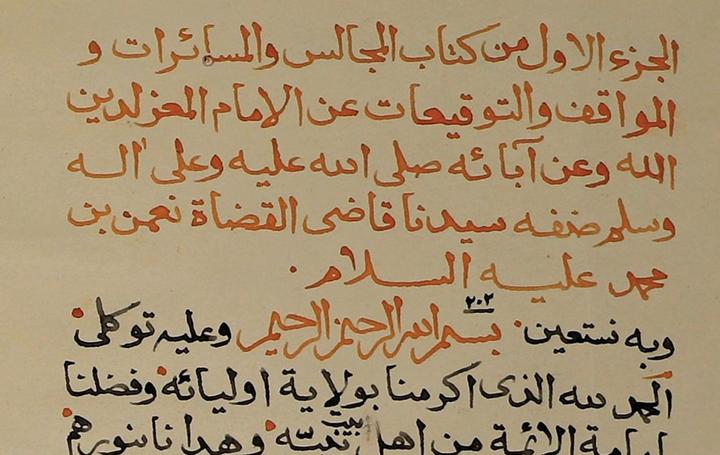 الجزء الاول من كتاب المجالس والمسائرات و
المواقف والتوقيعات عن الامام المعز لدين
الله وعن آبائه صلى الله عليه وعلى اله
وسلم صنفه سيدنا قاضى القضاة نعمن بن
محمد عليه السلام
٢٠٢
وبه نستعين بسم الله الرحمن الرحيم وعليه توكلى
الحمد لله الذى اكرمنا بولاية اوليائه وفضلنا
الائمة من اهل بيت وهدانا بنورهم